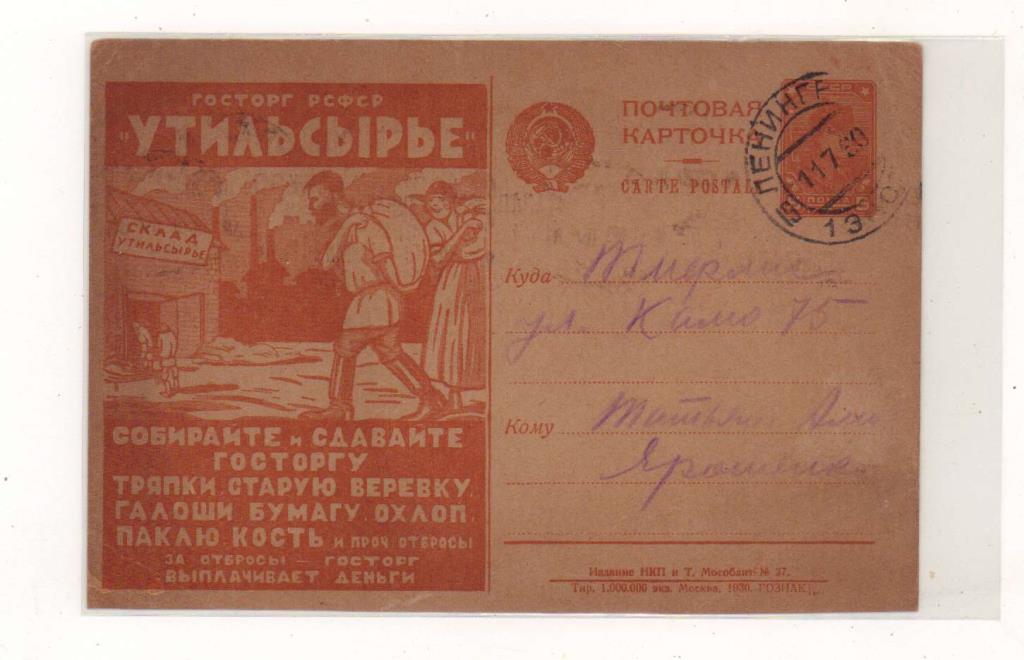 ГОСТОРГ РСФСР
"УТИЛЬСЫРЬЕ"
СКЛАД
УТИЛЬСЫРЬЕ
СОБИРАЙТЕ и СДАВАЙТЕ
ГОСТОРГУ
ТРЯПКИ, СТАРУЮ ВЕРЕВКУ,
ГАЛОШИ, БУМАГУ, ОХЛОП.
ПАКЛЮ, КОСТЬ И ПРОЧ. ОТБРОСЫ
ЗА ОТБРОСЫ — ГОСТОРГ
ВЫПЛАЧИВАЕТ ДЕНЬГИ
ПОЧТОВАЯ
КАРТОЧКА
CARTE POSTALE
ПОЧТА 5
ЛЕНИНГР
11 7 30
13
Куда Тифлис
ул. Камо 75
Кому Татьяне
Ярошенко
Издание НКП и Т. Мособлит № 27.
Тир. 1.000.000 экз. Москва, 1930. ГОЗНАК.